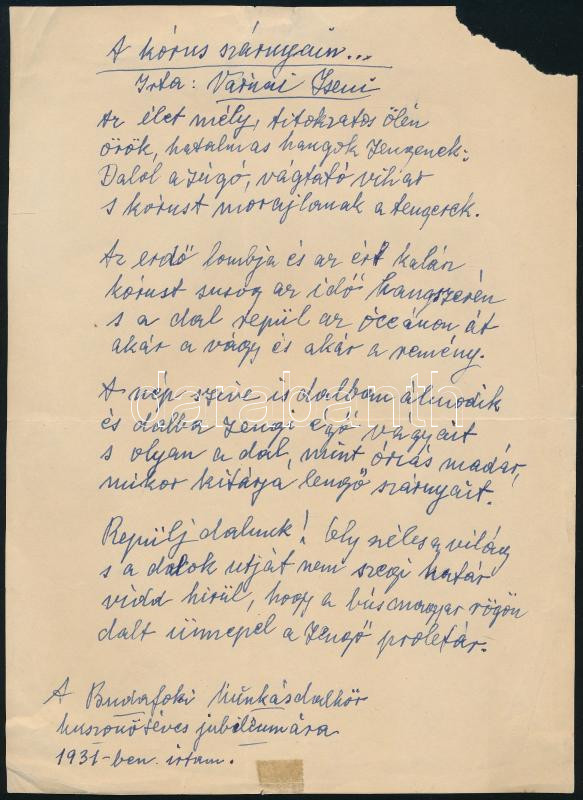 A kórus szárnyain...
Irta: Várnai Zseni
Az élet mély, titokzatos ölén
örök, hatalmas hangok zengenek:
Dalol a zúgó, vágtató vihar
s kórust morajlanak a tengerek.
Az erdő lombja és az érő kalász
kórust susog az idő hangszerén
s a dal repül az óceánon át
akár a vágy és akár a remény.
A nép szive is dalban álmodik
és dalba zengi égő vágyait
s olyan a dal, mint óriás madár,
mikor kitárja lengő szárnyait.
Repülj dalunk! Oly széles a világ
s a dalok utját nem szegi határ
vidd hirül, hogy a bús magyar rögön
dalt ünnepel a zengő proletár.
A Budafoki Munkásdalkör
huszonötéves jubileumára
1931-ben irtam.
darabanth.com